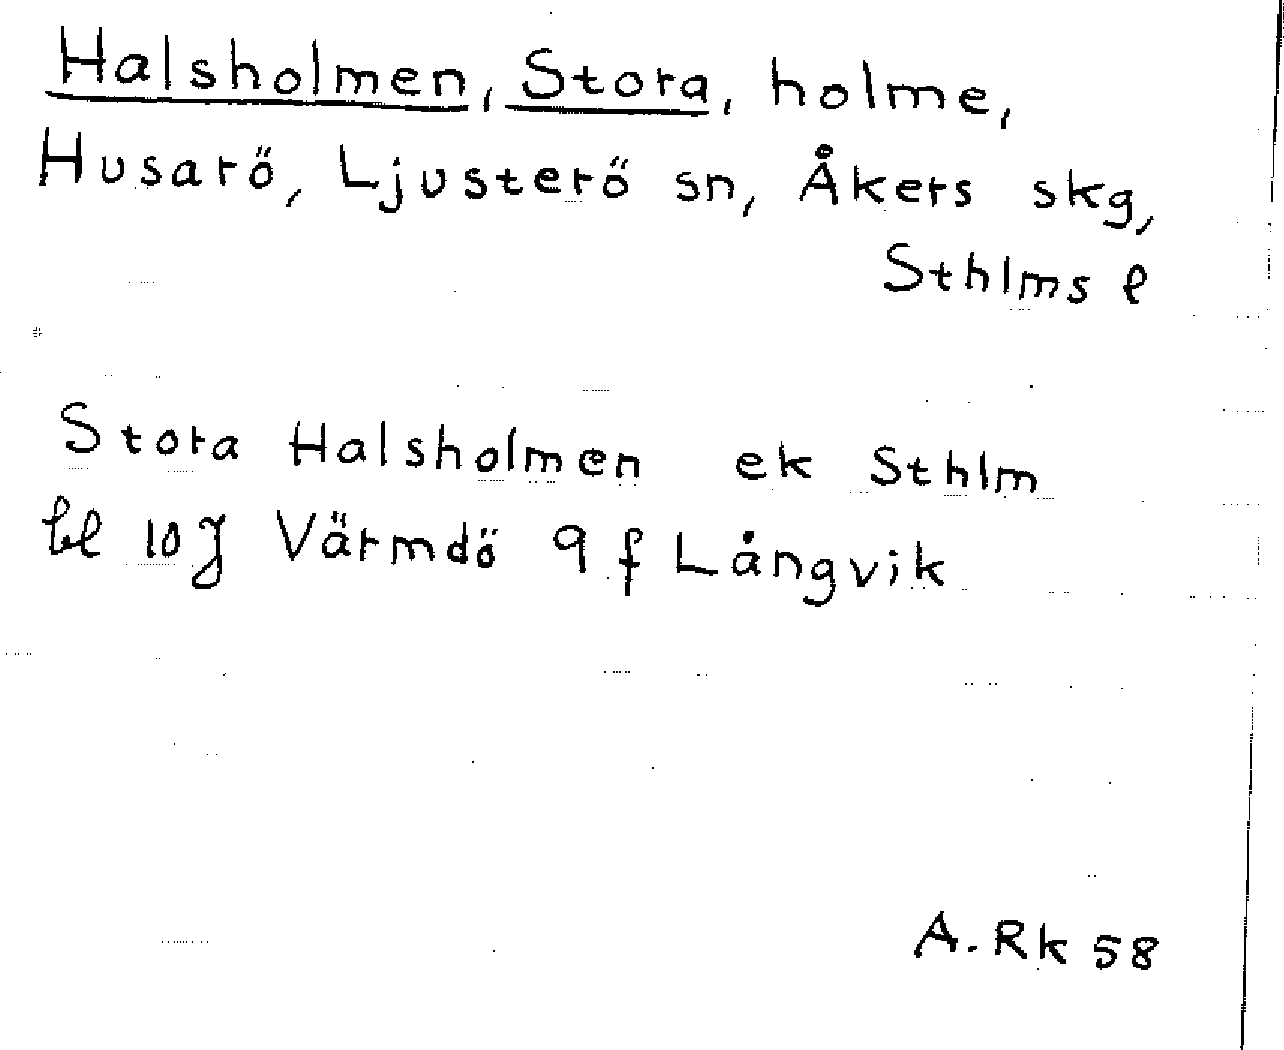 Halsholmen, Stora, holme,
Husarö, Ljusterö sn, Åkers skg,
Sthlms l
Stora Halsholmen ek Sthlm
bl 10J Värmdö 9f Långvik
A. Rk 58